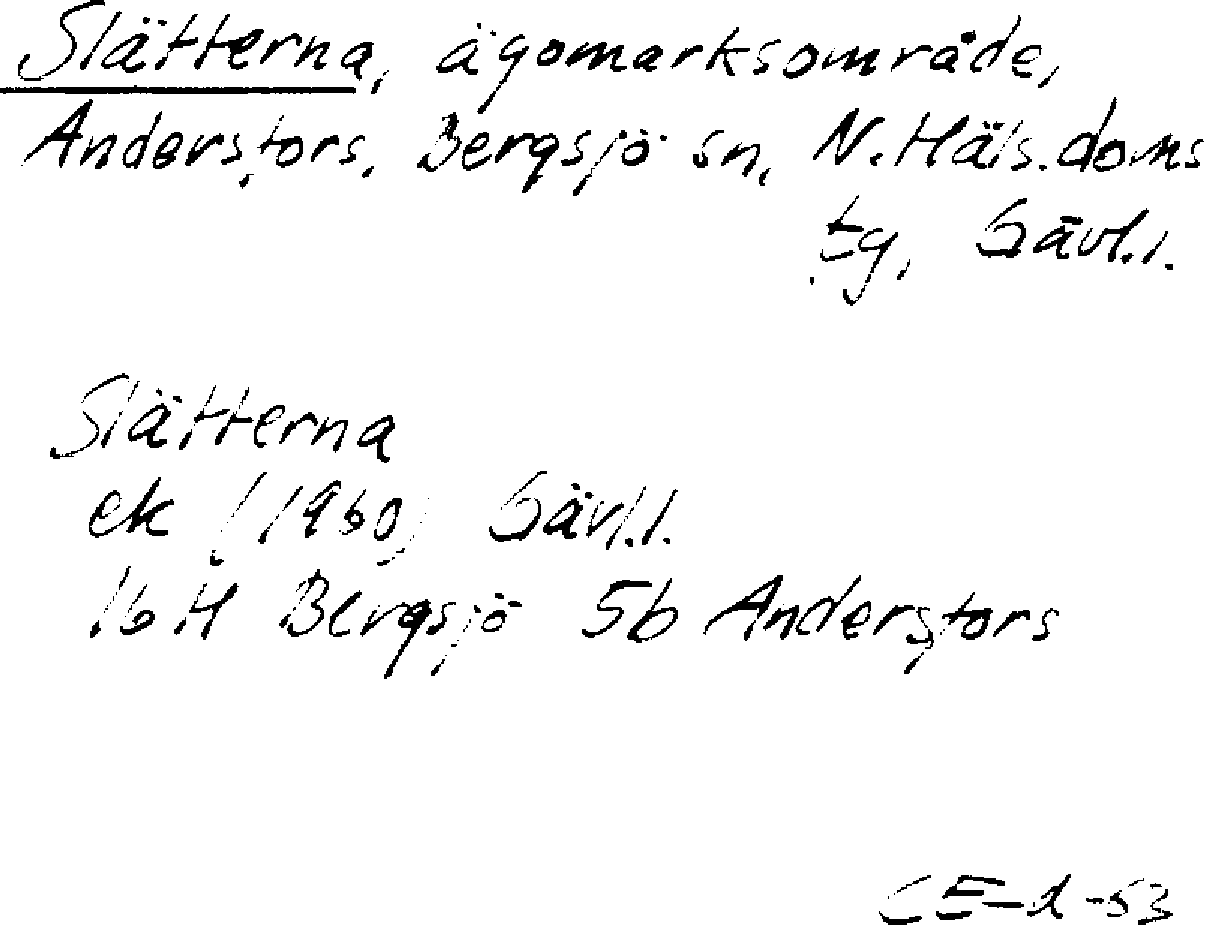 Slätterna, ägomarksområde,
Andersfors, Bergsjö sn, N. Häls. doms
tg, Gävl.l.
Slätterna
ek (1960) Gävl.l.
16H Bergsjö 5b Andersfors
CE-d-53